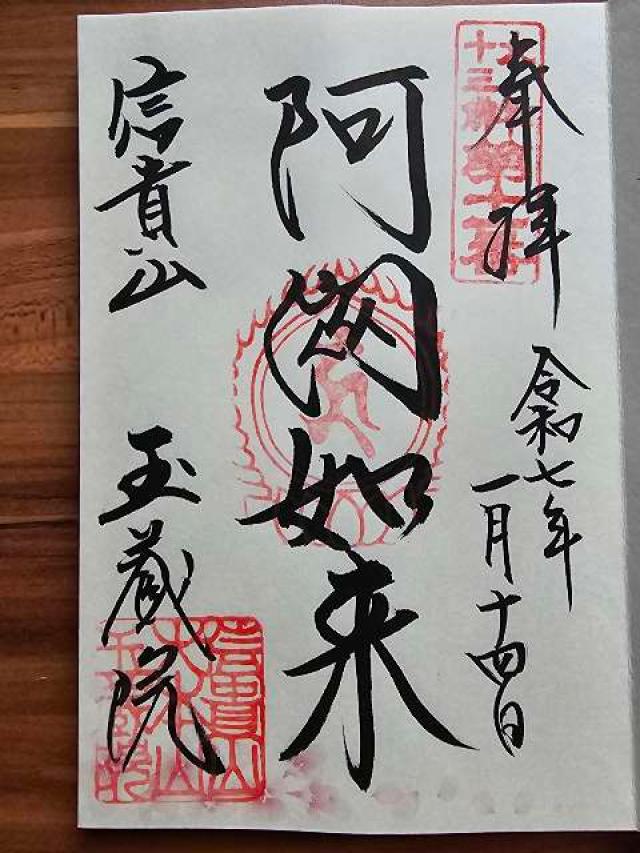 奉拝
令和七年
一月十四日
阿閦如来
信貴山
玉蔵院